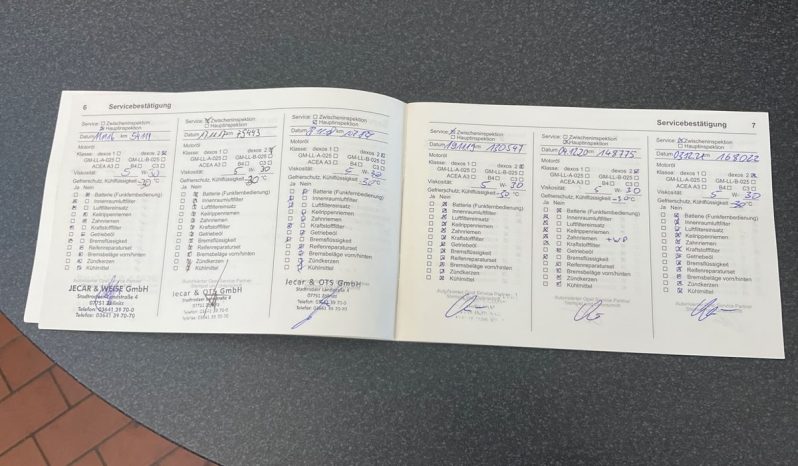 6 Servicebestätigung
Service: Zwischeninspektion
Hauptinspektion
Datum km 54111
Motoröl
Klasse: dexos 1 dexos 2
GM-LL-A-025 GM-LL-B-025
ACEA A3 B4 C3
Viskosität: 5 W- 30
Gefrierschutz, Kühlflüssigkeit -30°C
Ja Nein
Batterie (Funkfernbedienung)
Innenraumluftfilter
Luftfiltereinsatz
Keilrippenriemen
Zahnriemen
Kraftstofffilter
Getriebeöl
Bremsflüssigkeit
Reifenreparaturset
Bremsbeläge vorn/hinten
Zündkerzen
Kühlmittel
JECAR & WEISE GmbH
Stadtrodaer Landstraße 4
07751
Telefon: 03641 39 70-0
Telefax: 03641 39 70-70
Service: Zwischeninspektion
Hauptinspektion
Datum km 75443
Motoröl
Klasse: dexos 1 dexos 2
GM-LL-A-025 GM-LL-B-025
ACEA A3 B4 C3
Viskosität: 5 W- 30
Gefrierschutz, Kühlflüssigkeit -30°C
Ja Nein
Batterie (Funkfernbedienung)
Innenraumluftfilter
Luftfiltereinsatz
Keilrippenriemen
Zahnriemen
Kraftstofffilter
Getriebeöl
Bremsflüssigkeit
Reifenreparaturset
Bremsbeläge vorn/hinten
Zündkerzen
Kühlmittel
Jecar & OTS GmbH
Stadtrodaer Landstraße 4
07751
Service: Zwischeninspektion
Hauptinspektion
Datum km
Motoröl
Klasse: dexos 1 dexos 2
GM-LL-A-025 GM-LL-B-025
ACEA A3 B4 C3
Viskosität: 5 W-
Gefrierschutz, Kühlflüssigkeit -30°C
Ja Nein
Batterie (Funkfernbedienung)
Innenraumluftfilter
Luftfiltereinsatz
Keilrippenriemen
Zahnriemen
Kraftstofffilter
Getriebeöl
Bremsflüssigkeit
Reifenreparaturset
Bremsbeläge vorn/hinten
Zündkerzen
Kühlmittel
Jecar & OTS GmbH
Stadtrodaer Landstraße 4
07751
Servicebestätigung 7
Service: Zwischeninspektion
Hauptinspektion
Datum km 120547
Motoröl
Klasse: dexos 1 dexos 2
GM-LL-A-025 GM-LL-B-025
ACEA A3 B4 C3
Viskosität: 5 W- 30
Gefrierschutz, Kühlflüssigkeit -30°C
Ja Nein
Batterie (Funkfernbedienung)
Innenraumluftfilter
Luftfiltereinsatz
Keilrippenriemen
Zahnriemen
Kraftstofffilter
Getriebeöl
Bremsflüssigkeit
Reifenreparaturset
Bremsbeläge vorn/hinten
Zündkerzen
Kühlmittel
Service: Zwischeninspektion
Hauptinspektion
Datum km 148775
Motoröl
Klasse: dexos 1 dexos 2
GM-LL-A-025 GM-LL-B-025
ACEA A3 B4 C3
Viskosität: 5 W- 30
Gefrierschutz, Kühlflüssigkeit -30°C
Ja Nein
Batterie (Funkfernbedienung)
Innenraumluftfilter
Luftfiltereinsatz
Keilrippenriemen
Zahnriemen + WP
Kraftstofffilter
Getriebeöl
Bremsflüssigkeit
Reifenreparaturset
Bremsbeläge vorn/hinten
Zündkerzen
Kühlmittel
Service: Zwischeninspektion
Hauptinspektion
Datum 03.12.21 km 168022
Motoröl
Klasse: dexos 1 dexos 2
GM-LL-A-025 GM-LL-B-025
ACEA A3 B4 C3
Viskosität: 5 W- 30
Gefrierschutz, Kühlflüssigkeit -30°C
Ja Nein
Batterie (Funkfernbedienung)
Innenraumluftfilter
Luftfiltereinsatz
Keilrippenriemen
Zahnriemen
Kraftstofffilter
Getriebeöl
Bremsflüssigkeit
Reifenreparaturset
Bremsbeläge vorn/hinten
Zündkerzen
Kühlmittel